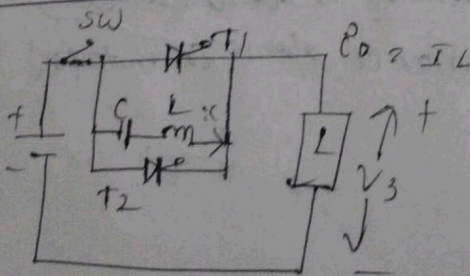 SW
T1
i0 = IL
+
C L ic
-
T2
L
+
V3